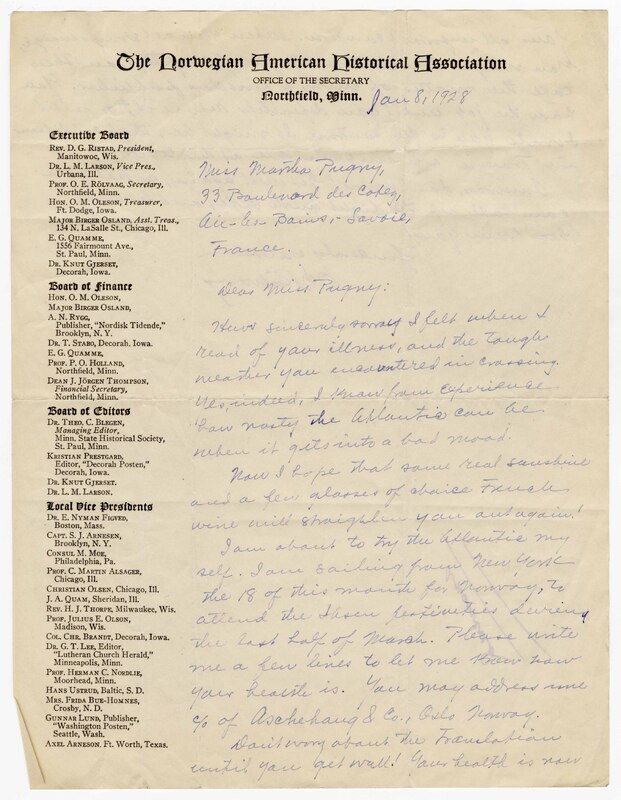 The Norwegian American Historical Association
OFFICE OF THE SECRETARY
Northfield, Minn.
Jan 8, 1928
Executive Board
REV. D. G. RISTAD, President,
Manitowoc, Wis.
DR. L. M. LARSON, Vice Pres.,
Urbana, Ill.
PROF. O. E. RÖLVAAG, Secretary,
Northfield, Minn.
HON. O. M. OLESON, Treasurer,
Ft. Dodge, Iowa.
MAJOR BIRGER OSLAND, Asst. Treas.,
134 N. LaSalle St., Chicago, Ill.
E. G. QUAMME,
1556 Fairmount Ave.,
St. Paul, Minn.
DR. KNUT GJERSET,
Decorah, Iowa.
Board of Finance
HON. O. M. OLESON,
MAJOR BIRGER OSLAND,
A. N. RYGG,
Publisher, "Nordisk Tidende,"
Brooklyn, N. Y.
DR. T. STABO, Decorah, Iowa.
E. G. QUAMME,
PROF. P. O. HOLLAND,
Northfield, Minn.
DEAN J. JÖRGEN THOMPSON,
Financial Secretary,
Northfield, Minn.
Board of Editors
DR. THEO. C. BLEGEN,
Managing Editor,
Minn. State Historical Society,
St. Paul, Minn.
KRISTIAN PRESTGARD,
Editor, "Decorah Posten,"
Decorah, Iowa.
DR. KNUT GJERSET.
DR. L. M. LARSON.
Local Vice Presidents
DR. E. NYMAN FIGVED,
Boston, Mass.
CAPT. S. J. ARNESEN,
Brooklyn, N. Y.
CONSUL M. MOE,
Philadelphia, Pa.
PROF. C. MARTIN ALSAGER,
Chicago, Ill.
CHRISTIAN OLSEN, Chicago, Ill.
J. A. QUAM, Sheridan, Ill.
REV. H. J. THORPE, Milwaukee, Wis.
PROF. JULIUS E. OLSON,
Madison, Wis.
COL. CHR. BRANDT, Decorah, Iowa.
DR. G. T. LEE, Editor,
"Lutheran Church Herald,"
Minneapolis, Minn.
PROF. HERMAN C. NORDLIE,
Moorhead, Minn.
HANS USTRUD, Baltic, S. D.
MRS. FRIDA BUE-HOMNES,
Crosby, N. D.
GUNNAR LUND, Publisher,
"Washington Posten,"
Seattle, Wash.
AXEL ARNESON, Ft. Worth, Texas.
Miss Martha Pugny,
33 Boulevard des Cotes,
Aix-les-Bains, - Savoie,
France.
Dear Miss Pugny:
How sincerely sorry I felt when I
read of your illness, and the tough
weather you encountered in crossing.
Yes, indeed, I know from experience
how nasty the Atlantic can be
when it gets into a bad mood!
Now I hope that some real sunshine
and a few glasses of choice French
wine will straighten you out again!
I am about to try the Atlantic my
self. I am sailing from New York
the 18 of this month for Norway, to
attend the Ibsen festivities during
the last half of March. Please write
me a few lines to let me know how
your health is. You may address me
c/o of Aschehaug & Co., Oslo Norway.
Don't worry about the Translation
until you get well! Your health is now